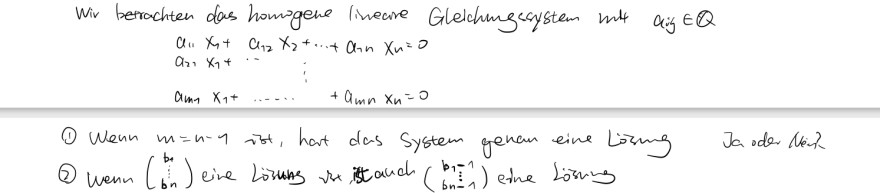 Wir betrachten das homogene lineare Gleichungssystem mit aij ∈ ℚ
a11 x1 + a12 x2 + ... + a1n xn = 0
a21 x1 + ...
⋮
am1 x1 + ...... + amn xn = 0
① Wenn m = n-1 ist, hat das System genau eine Lösung Ja oder Nein?
② wenn (b1 ⋮ bn) eine Lösung ist, ist auch (b1-1 ⋮ bn-1) eine Lösung